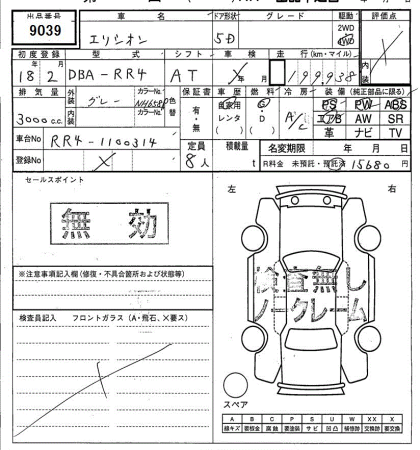 出品番号 車名 ドア形状 グレード 駆動 評価点
9039 エリシオン 5D 2WD 4WD
初度登録 型式 シフト 車検 走行(km・マイル) 内装
18年2月 DBA-RR4 AT ╳年 199938
排気量 外装 グレー カラーNo. NH658P 色替 保証書 車歴 燃料 冷房 装備(純正部品に限る)
3000c.c. 内装 カラーNo. 有・無 自家用 レンタ ( ) G・D ( ) A/C PS PW ABS
エアB AW SR
革 ナビ TV
車台No RR4-1100314 定員 積載量 名変期限 年 月 日
登録No ╳ 8人 t R料金 未預託・預託済 15680円
セールスポイント 左 右
無効
検査無し
ノークレーム
※注意事項記入欄(修復・不具合箇所および状態等)
検査員記入 フロントガラス(A・飛石、X要ス)
スペア
A B C P S U W X XX
線キズ 要板金 腐蝕 要塗装 サビ 凹凸 補修跡 要交換